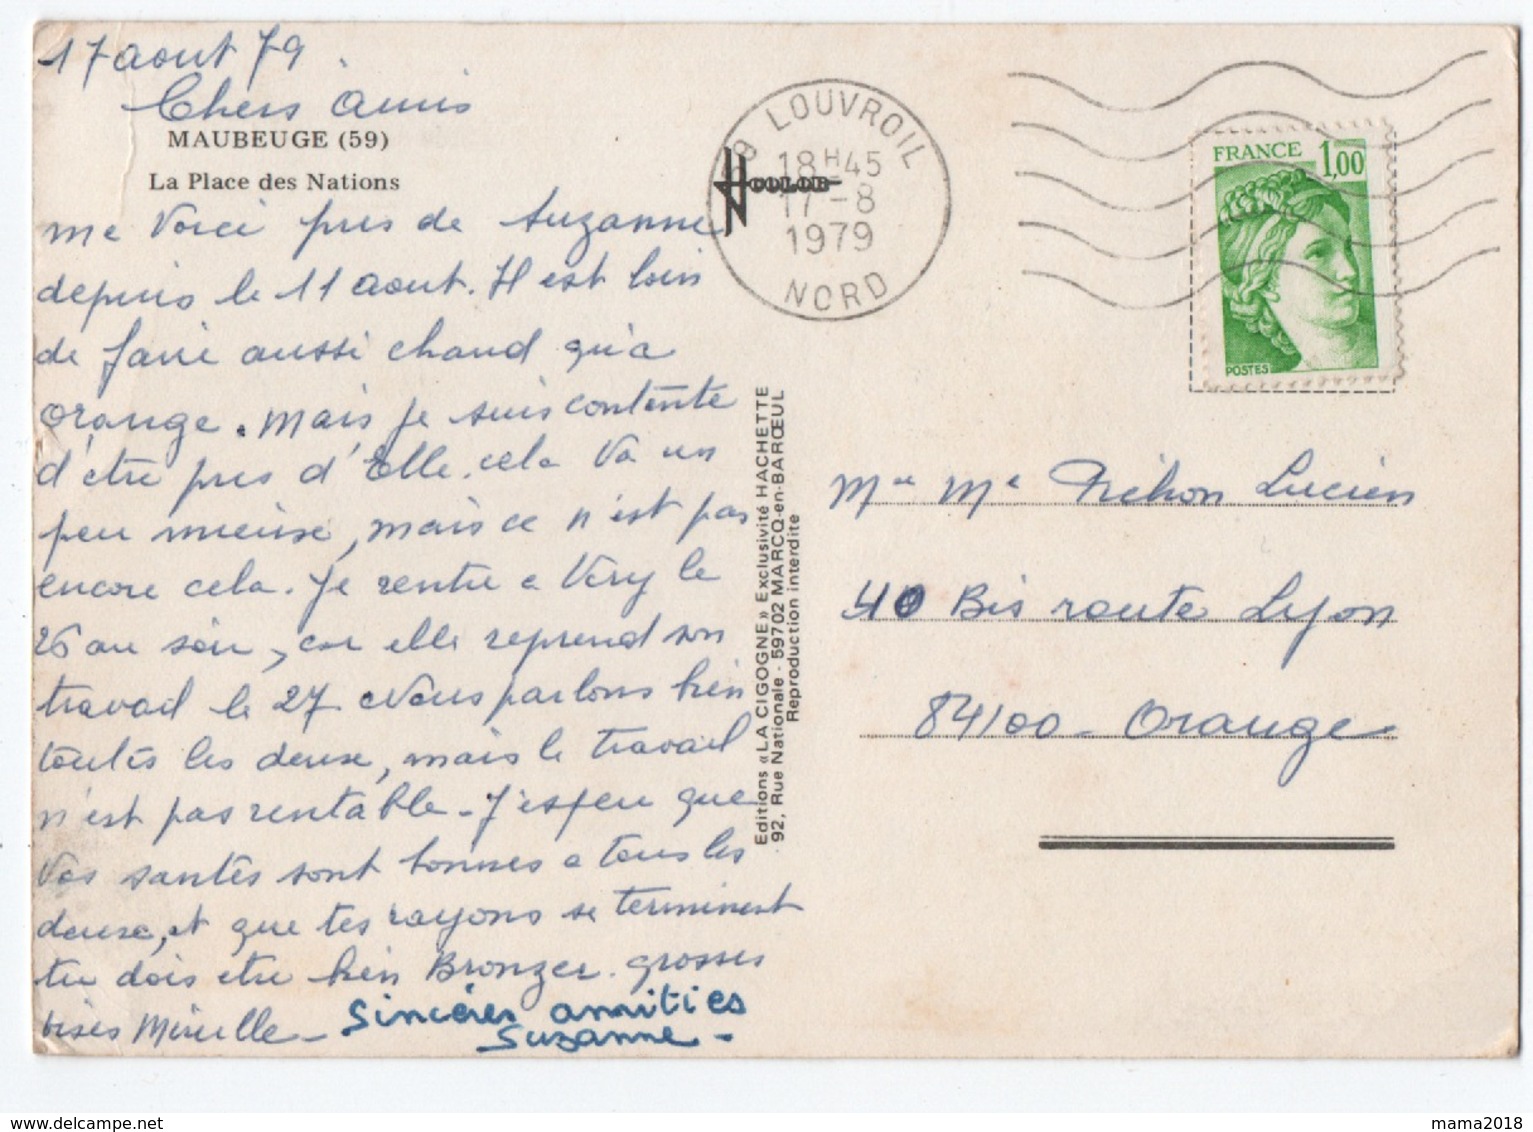 17 aout 79.
Chers amis
MAUBEUGE (59)
La Place des Nations
me voici pres de Suzanne
depuis le 11 aout. Il est loin
de faire aussi chaud qu'a
Orange. Mais je suis contente
d'etre pres d'Elle. cela va un
peu mieuse, mais ce n'est pas
encore cela. Je rentre a Viry le
26 au soir, car elle reprend son
travail le 27. Nous parlons bien
toutes les deuse, mais le travail
n'est pas rentable - J'espeu que
vos santés sont bonnes a tous les
deuse, et que tes rayons se terminent
tu dois etre bien Bronzer. grosses
bises Mireille -
Sincéres amitiés
Suzanne -
Editions «LA CIGOGNE» Exclusivité HACHETTE
92, Rue Nationale - 59702 MARCQ-en-BARŒUL
Reproduction interdite
59 LOUVROIL
18H45
17-8
1979
NORD
FRANCE 1,00
POSTES
Mr Me Lucien
40 Bis route Lyon
84100 - Orange
www.delcampe.net
mama2018